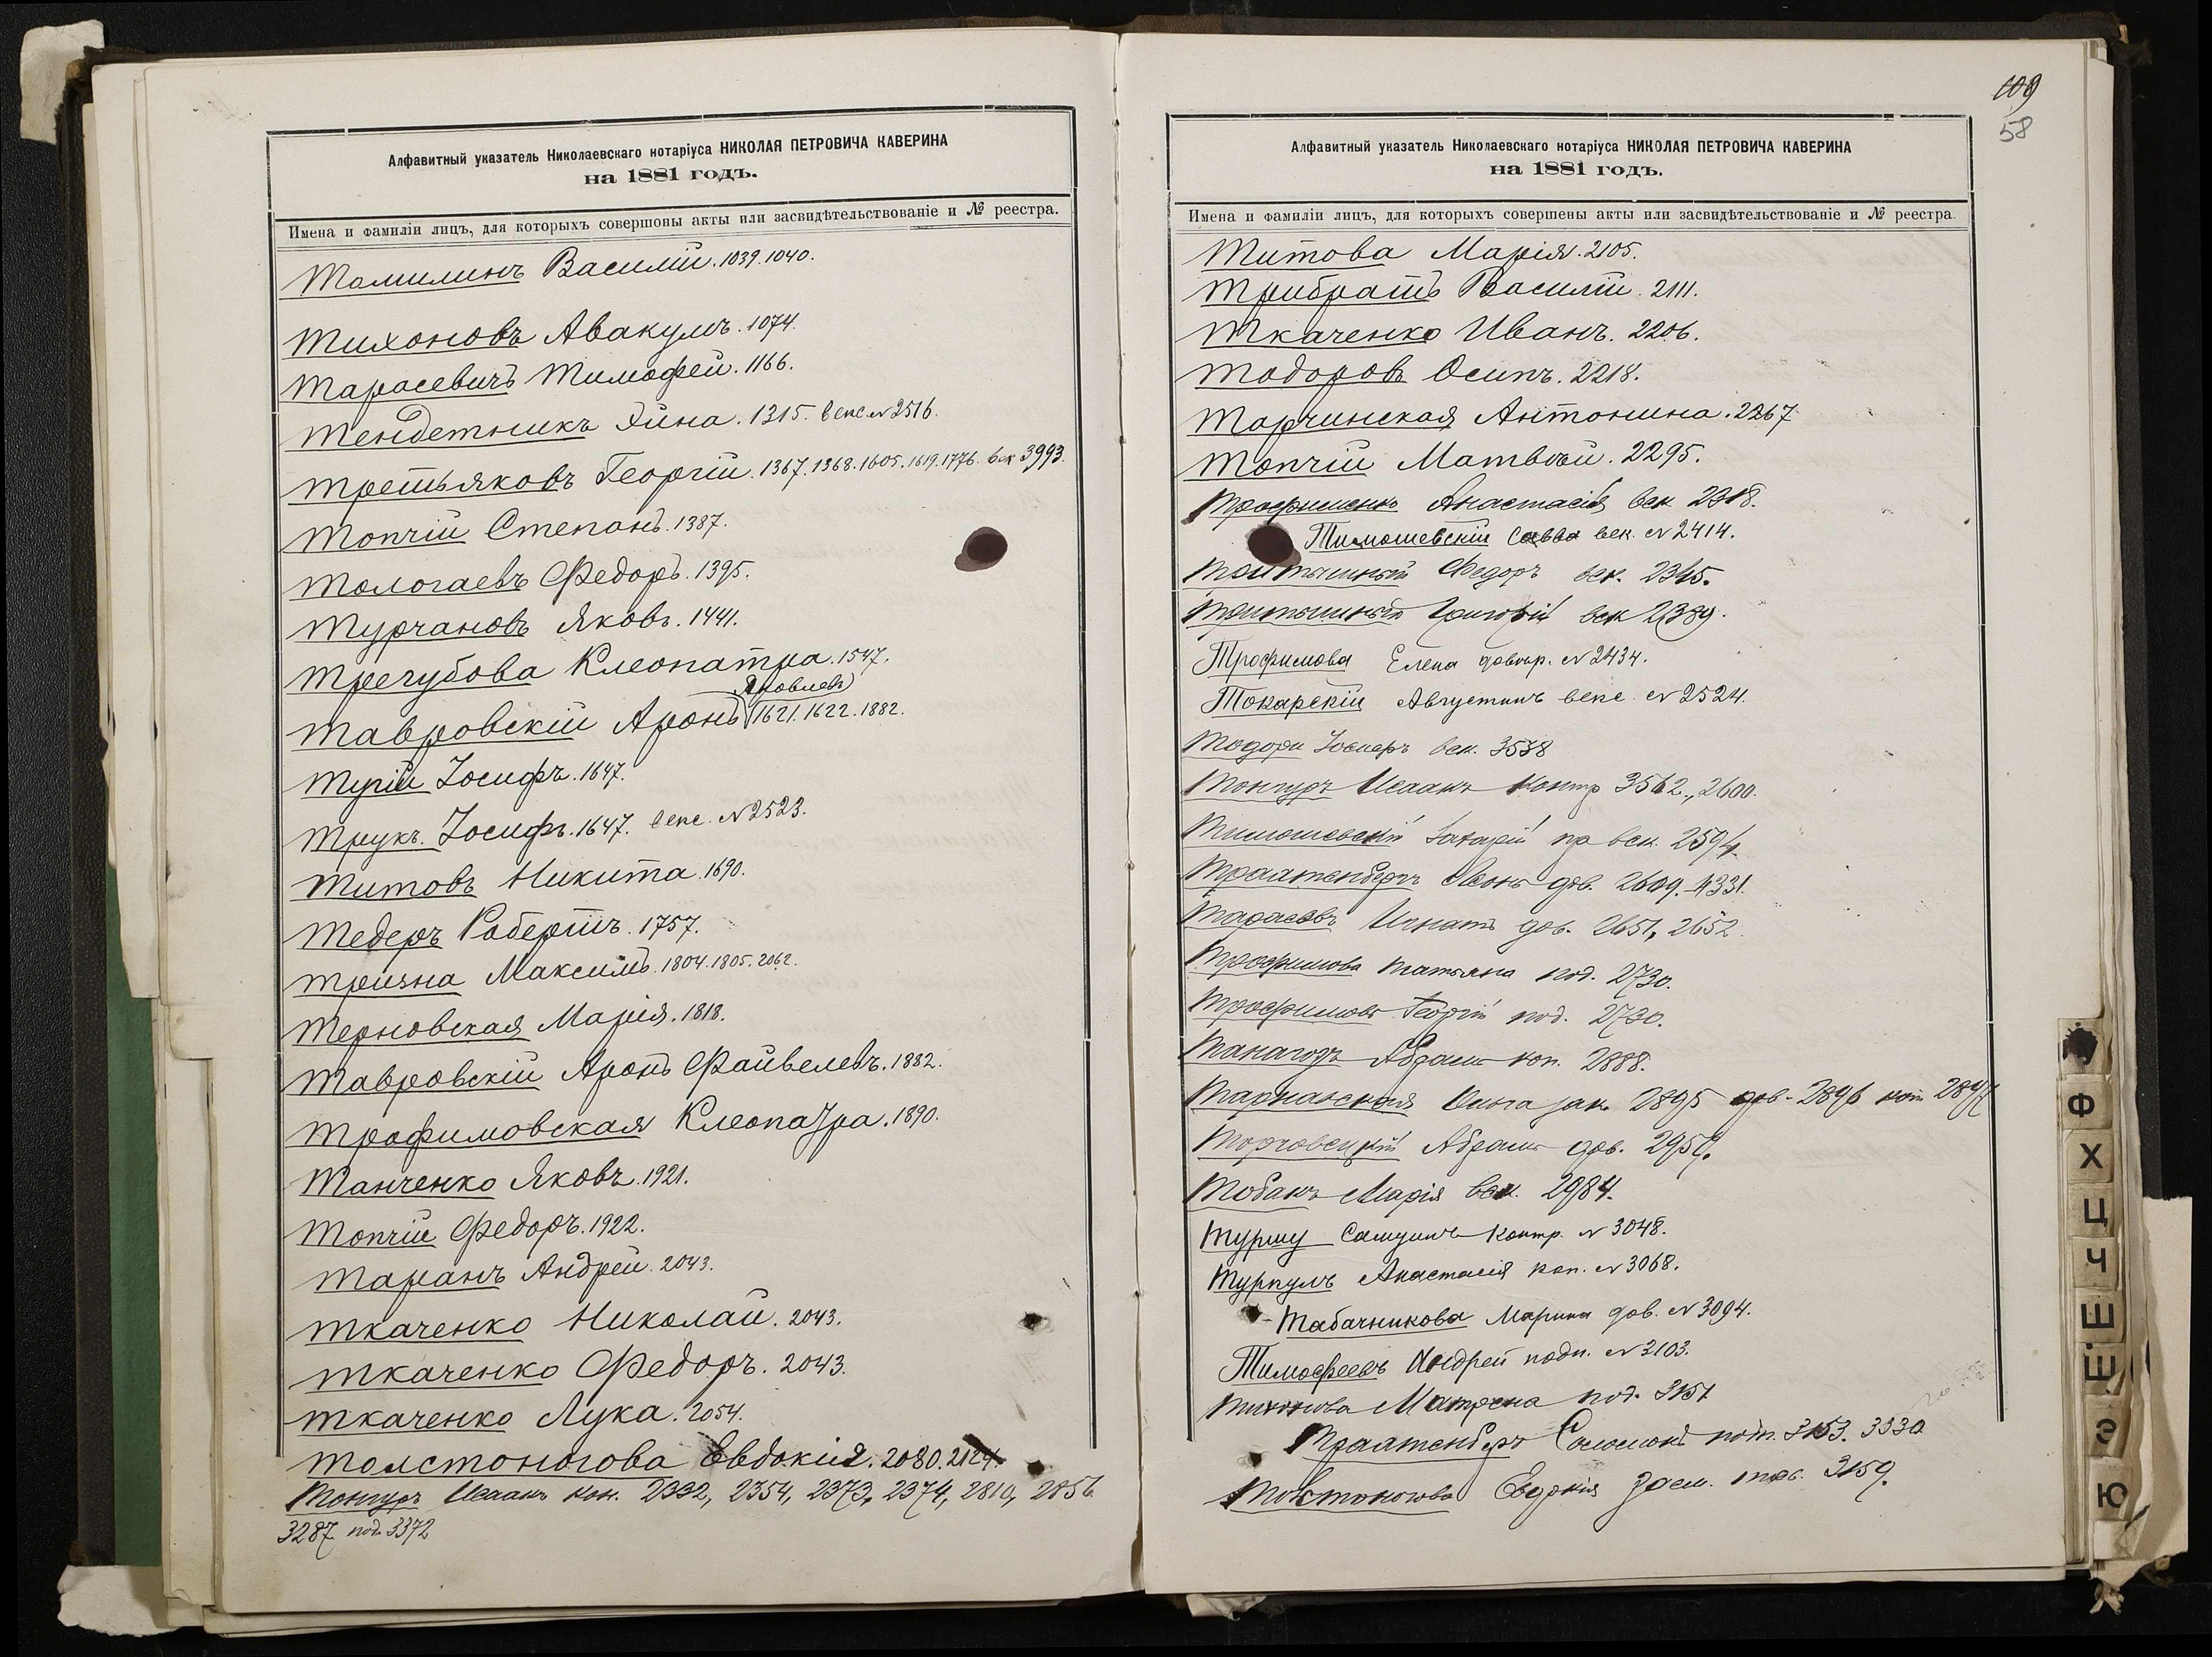 Алфавитный указатель Николаевскаго нотаріуса НИКОЛАЯ ПЕТРОВИЧА КАВЕРИНА
на 1881 годъ.
Имена и фамиліи лицъ, для которыхъ совершоны акты или засвидѣтельствованіе и № реестра.
Томилинъ Василій. 1039. 1040.
Тихоновъ Авакумъ. 1074.
Тарасевичъ Тимофей. 1166.
Тендетникъ Эйна. 1315. векс. № 2516.
Третьяковъ Георгій. 1367. 1368. 1605. 1619. 1776. век 3993.
Топчій Степанъ. 1387.
Тологаевъ Федоръ. 1395.
Турчановъ Яковъ. 1441.
Тречубова Клеопатра. 1547.
Яковлевъ
Тавровскій Аронъ 1621. 1622. 1882.
Іосифъ. 1647.
Трукъ. Іосифъ. 1647. векс. № 2523.
Титовъ Никита. 1690.
Тедеръ Робертъ. 1757.
Тризна Максимъ. 1804. 1805. 2062.
Терновская Марія. 1818.
Тавровскій Аронъ Файвелевъ. 1882.
Трофимовская Клеопатра. 1890.
Танченко Яковъ. 1921.
Топчій Федоръ. 1922.
Таранъ Андрей. 2043.
Ткаченко Николай. 2043.
Ткаченко Федоръ. 2043.
Ткаченко Лука. 2054.
Толстоногова Евдокія. 2080. 2124.
Тонгуръ Исаакъ кон. 2332, 2354, 2373, 2374, 2810, 2856
3287 под. 3372
109
58
Алфавитный указатель Николаевскаго нотаріуса НИКОЛАЯ ПЕТРОВИЧА КАВЕРИНА
на 1881 годъ.
Имена и фамиліи лицъ, для которыхъ совершены акты или засвидѣтельствованіе и № реестра.
Титова Марія. 2105.
Трибратъ Василій. 2111.
Ткаченко Иванъ. 2206.
Тодоровъ Осипъ. 2218.
Тарчинская Антонина. 2267
Топчій Матвѣй. 2295.
Трофименко Анастасія век 2318.
Тимошевскій Савва век. № 2414.
Федоръ век. 2345.
Григорій век 2389.
Трофимова Елена довѣр. № 2434.
Токарскій Августинъ векс. № 2524.
Тодори век. 3538
Тонгуръ Исаакъ контр 3562., 2600.
Тимошевскій Захарій пр век. 2594.
Траатенбергъ дов. 2609. 4331.
Тарасовъ Игнатъ дов. 2651, 2652.
Трофимова Татьяна под. 2730.
Трофимовъ Георгій под. 2730.
Абрамъ коп. 2888.
Тарнавская 2895 дов. 2896 коп 2897
Торговецкій Абрамъ дов. 2959.
Тобакъ Марія век. 2984.
Туршу Самуилъ контр. № 3048.
Турпулъ Анастасія коп. № 3068.
Табачникова Марина дов. № 3094.
Тимофеевъ Андрей подп. № 3103.
Тихонова Матрена под. 3151
Траатенберъ Соломонъ 3153. 3330
Толстоногова Евдокія 3159.
Ф
Х
Ц
Ч
Ш
Щ
Э
Ю